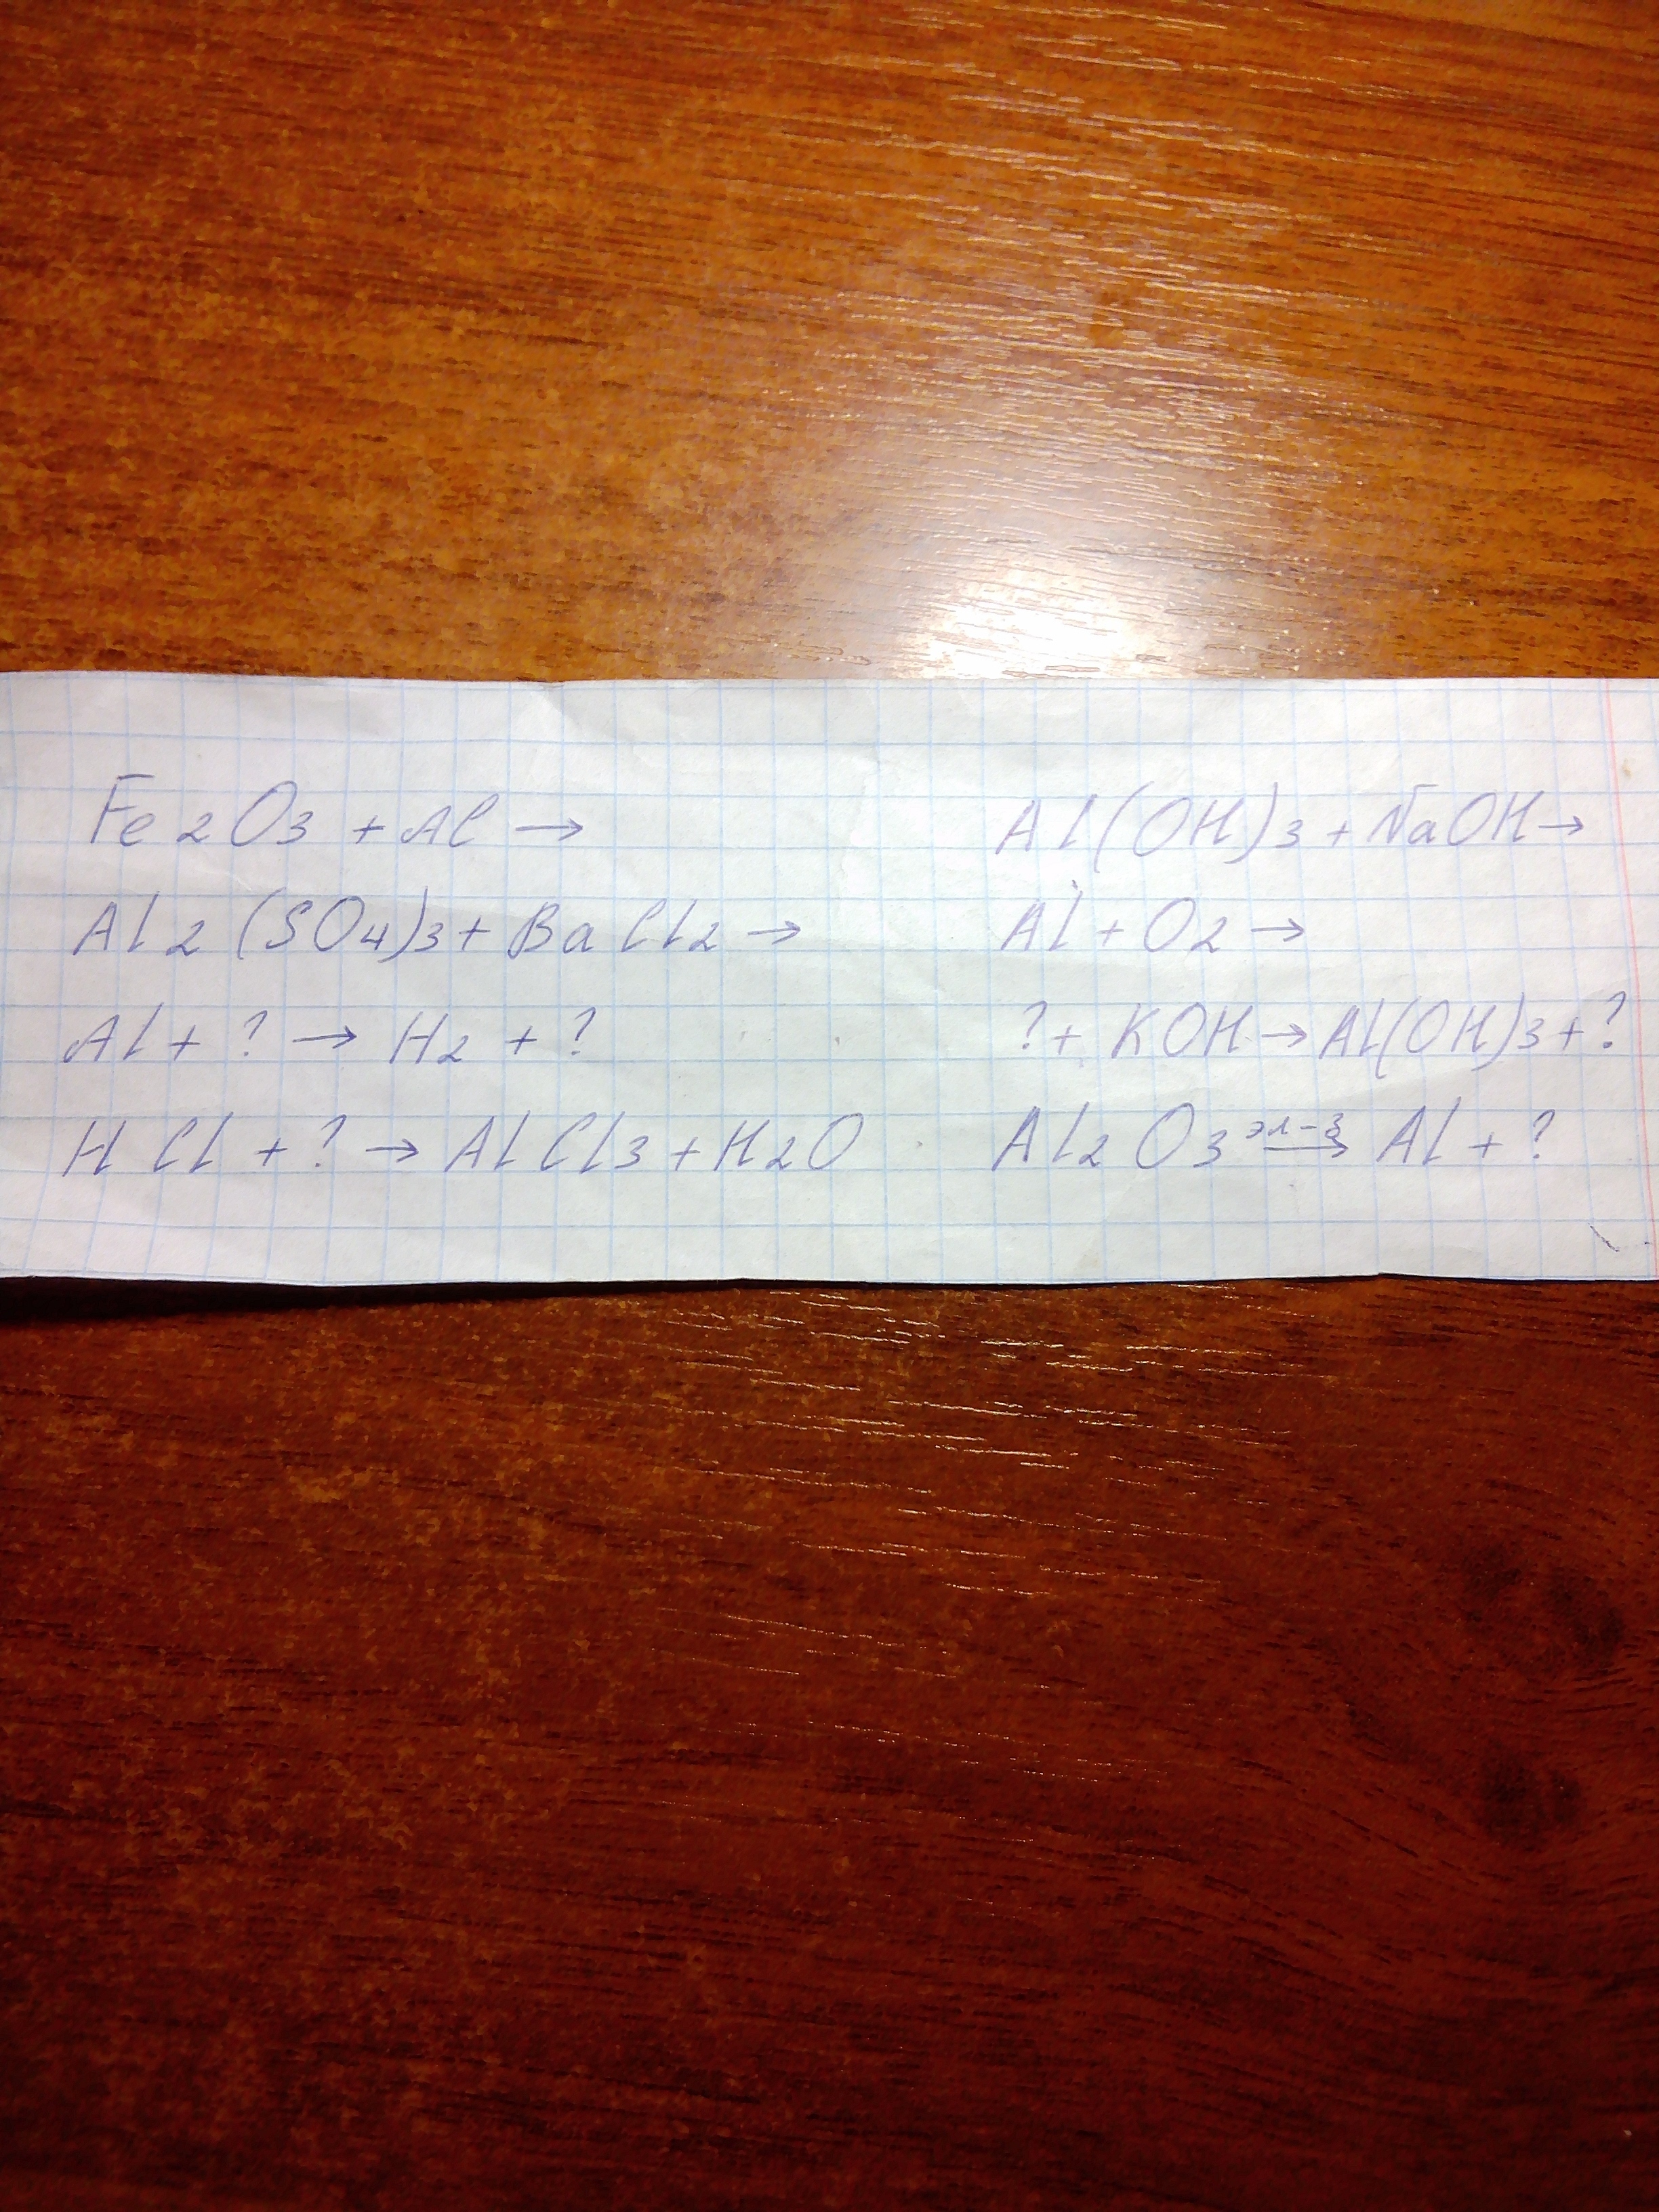 Fe2O3 + Al →
Al2(SO4)3 + BaCl2 →
Al + ? → H2 + ?
HCl + ? → AlCl3 + H2O
Al(OH)3 + NaOH →
Al + O2 →
? + KOH → Al(OH)3 + ?
Al2O3 эл-з → Al + ?